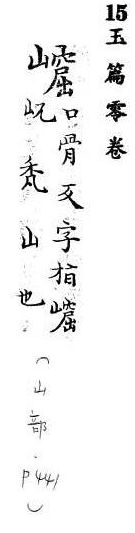 15 玉篇零卷
口骨反字指
屼禿山也
(山部.P441)